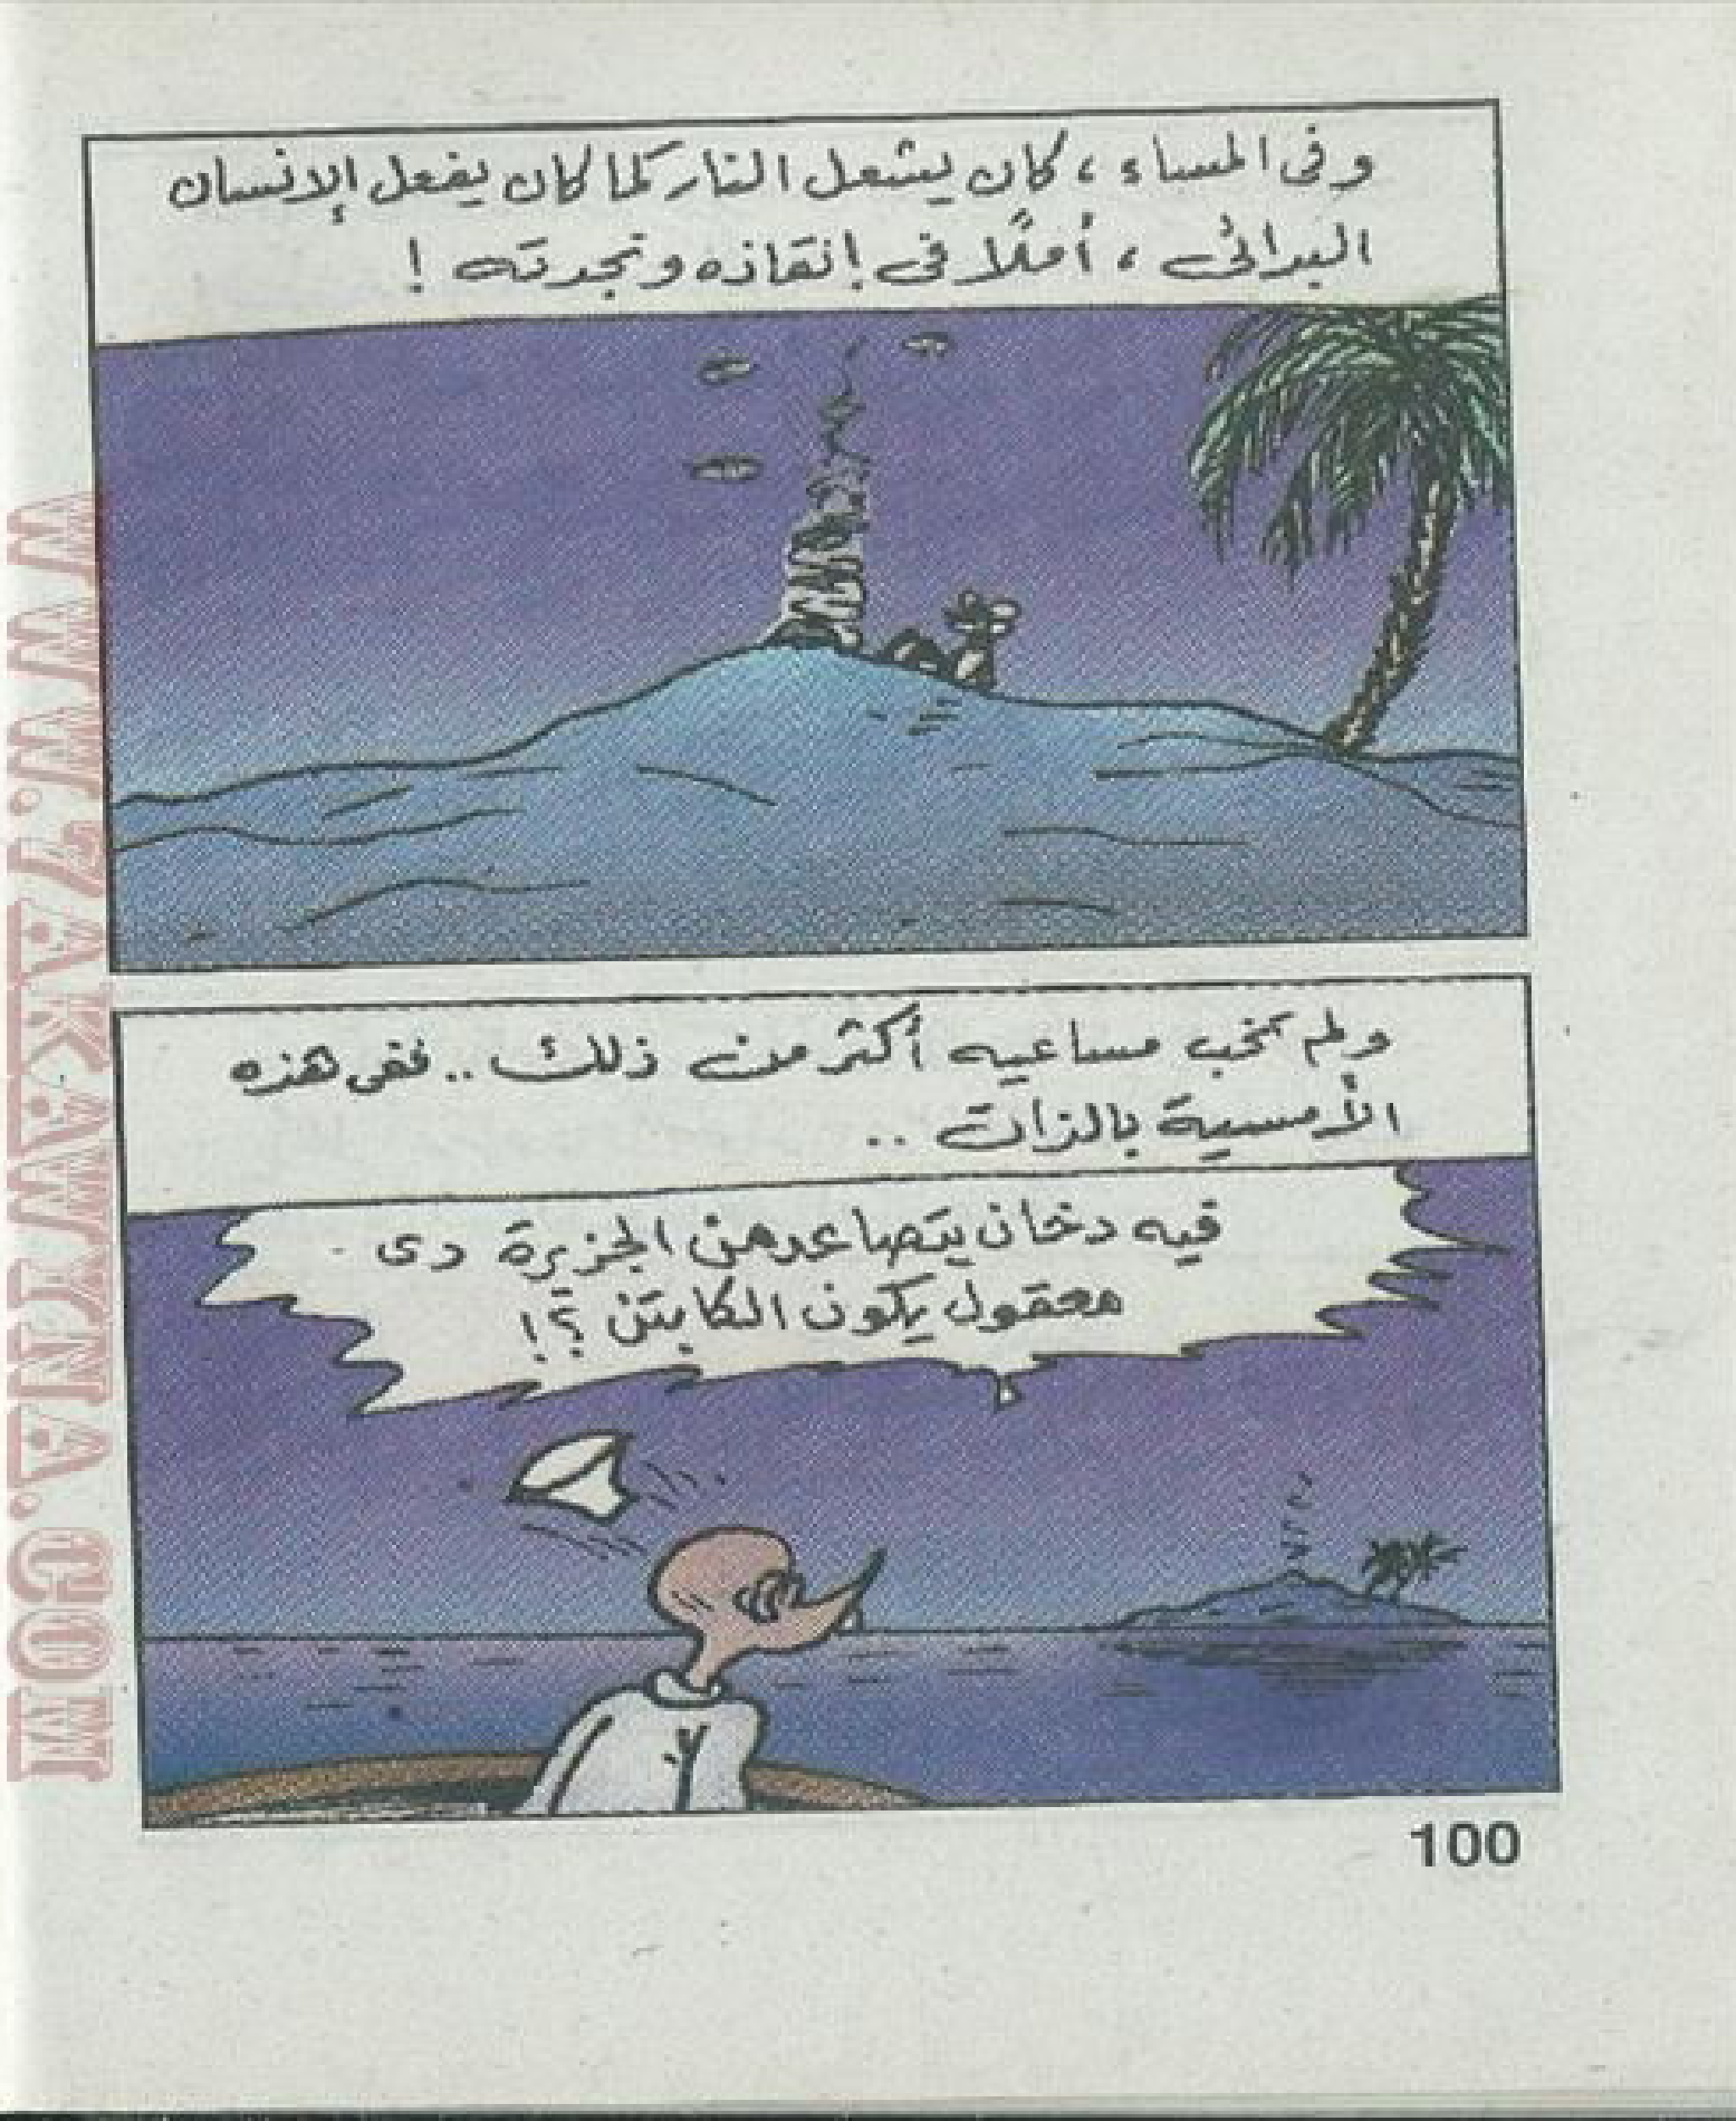 وفى المساء ، كان يشعل النار كما كان يفعل الإنسان
البدائى ، أملًا فى إنقاذه ونجدته !
ولم تخب مساعيه أكثر من ذلك .. ففى هذه
الأمسية بالذات ..
فيه دخان يتصاعد من الجزيرة دى
معقول يكون الكابتن ؟!
100
WWW.7AKAWINNA.COM